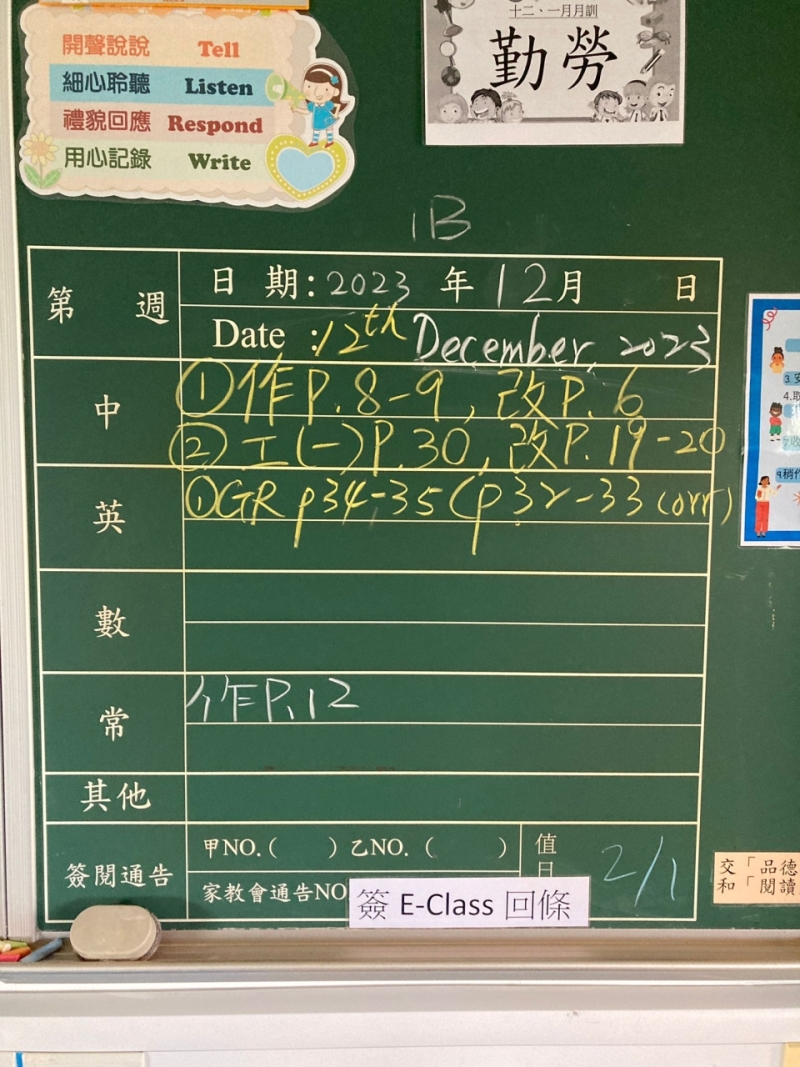 開聲說說 Tell
細心聆聽 Listen
禮貌回應 Respond
用心記錄 Write
十二、一月月訓
勤勞
1B
第 週
日 期: 2023 年 12月 日
Date : 12th December, 2023
中
①作P. 8-9, 改P. 6
②工(一)P.30, 改P. 19-20
英
①GR p34-35 (p32-33 corr)
數
常
作P.12
其他
簽閱通告
甲NO.( ) 乙NO. ( )
家教會通告NO
值日
2/1
簽 E-Class 回條
交「品德
和「閱讀